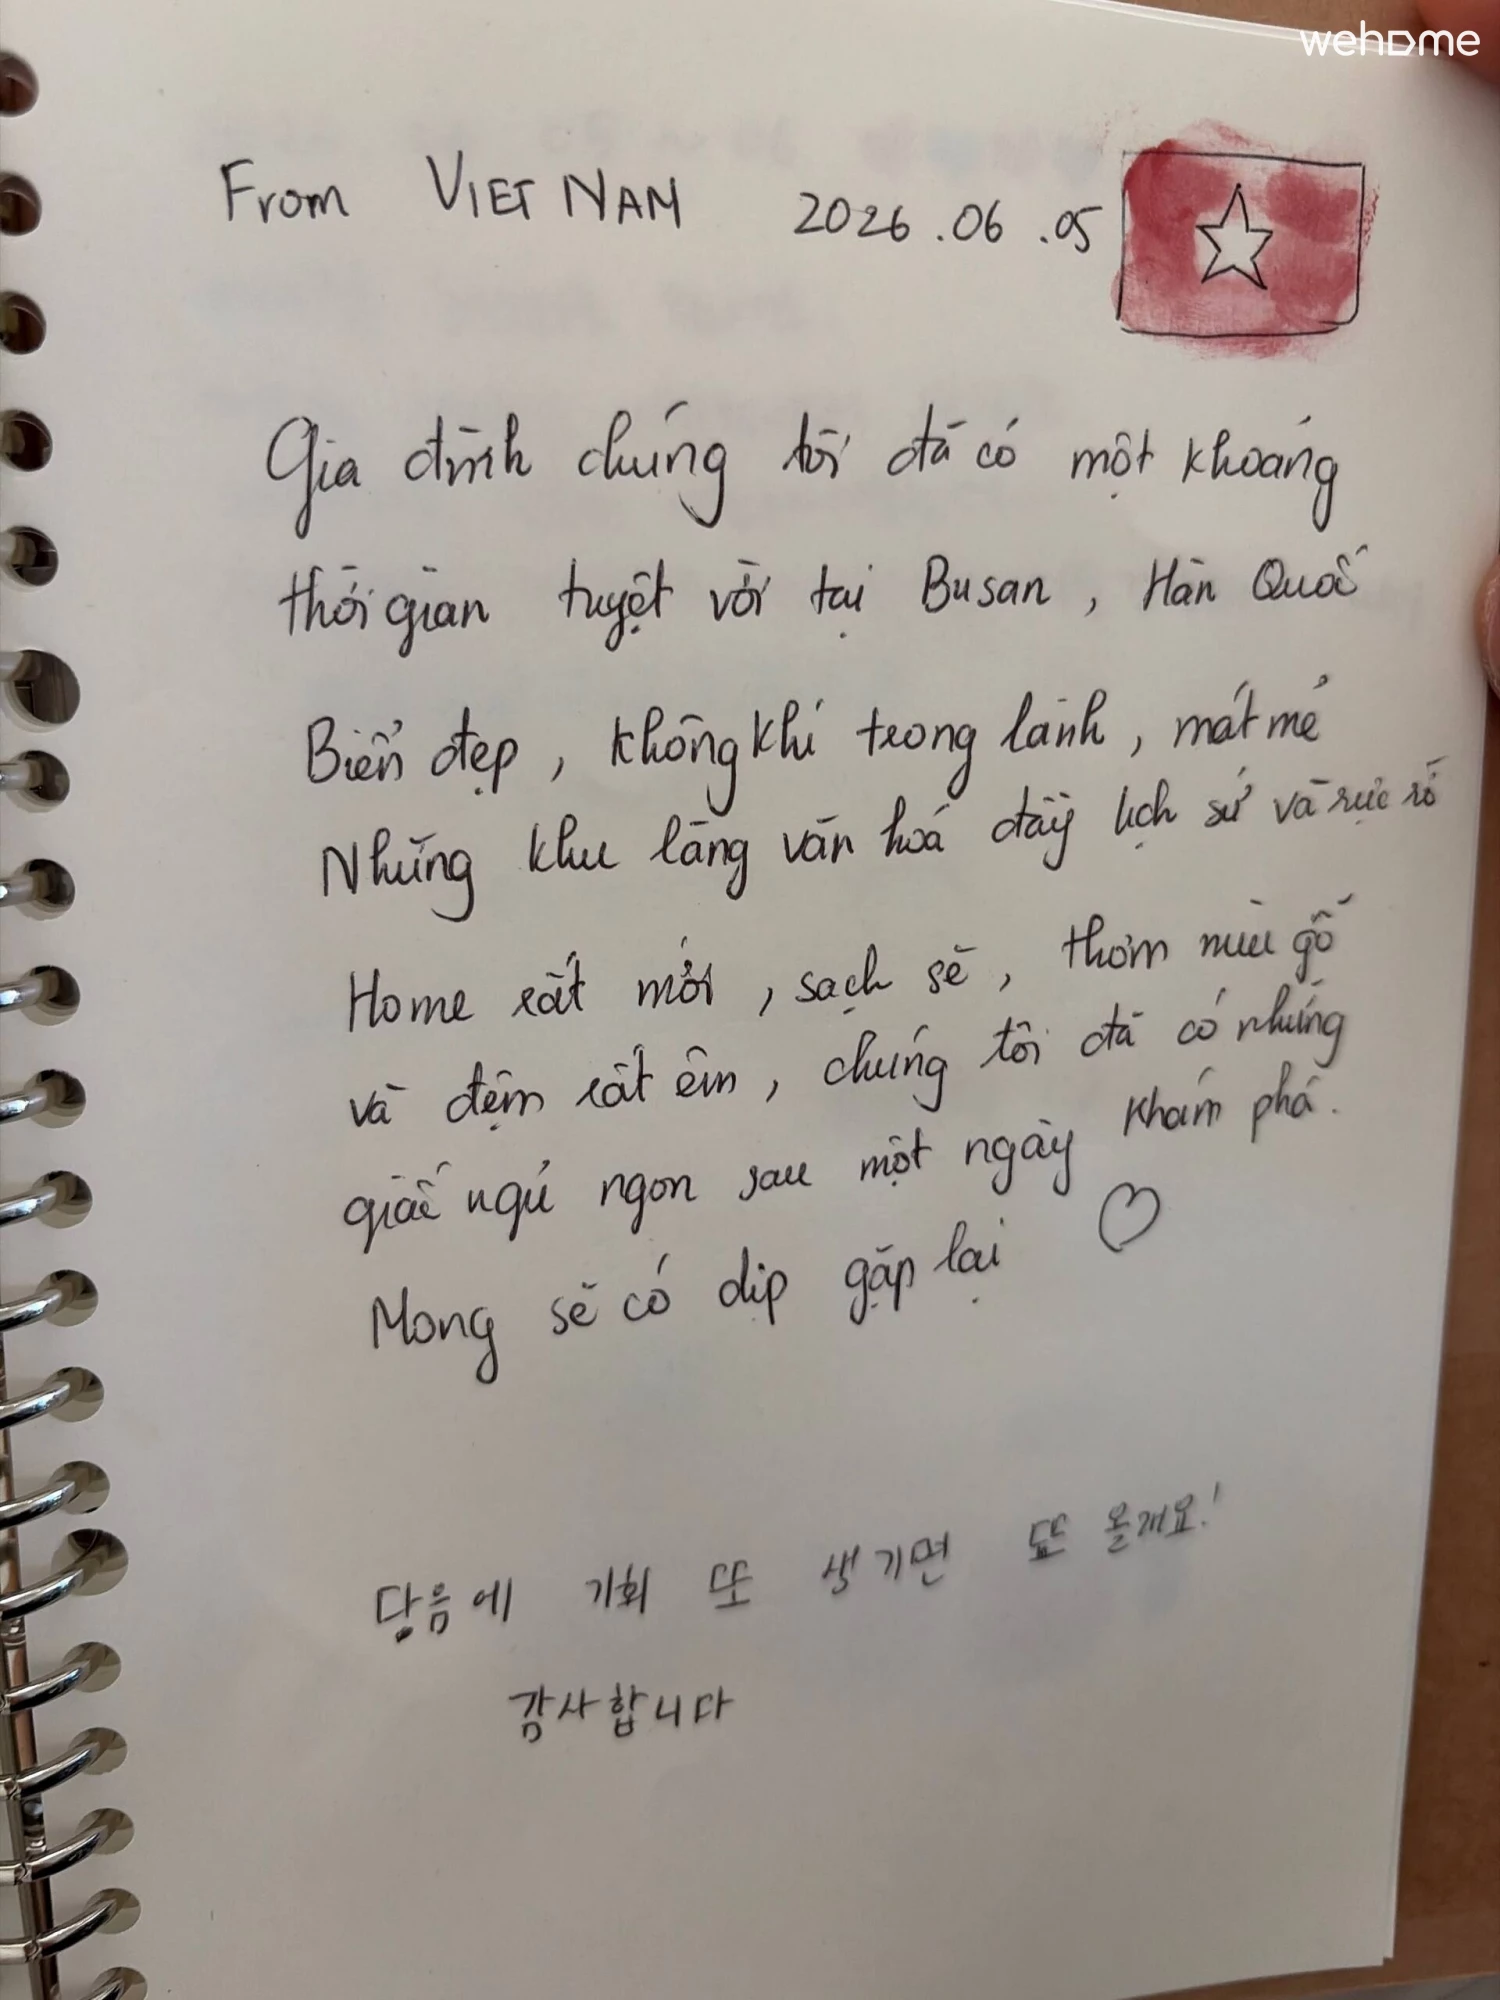 wehome
From VIET NAM 2026.06.05
Gia đình chúng tôi đã có một khoảng
thời gian tuyệt vời tại Busan, Hàn Quốc
Biển đẹp, không khí trong lành, mát mẻ
Những khu làng văn hoá đầy lịch sử và rực rỡ
Home rất mới, sạch sẽ, thơm mùi gỗ
và đệm rất êm, chúng tôi đã có những
giấc ngủ ngon sau một ngày khám phá.
Mong sẽ có dịp gặp lại ♡
다음에 기회 또 생기면 또 올게요!
감사합니다